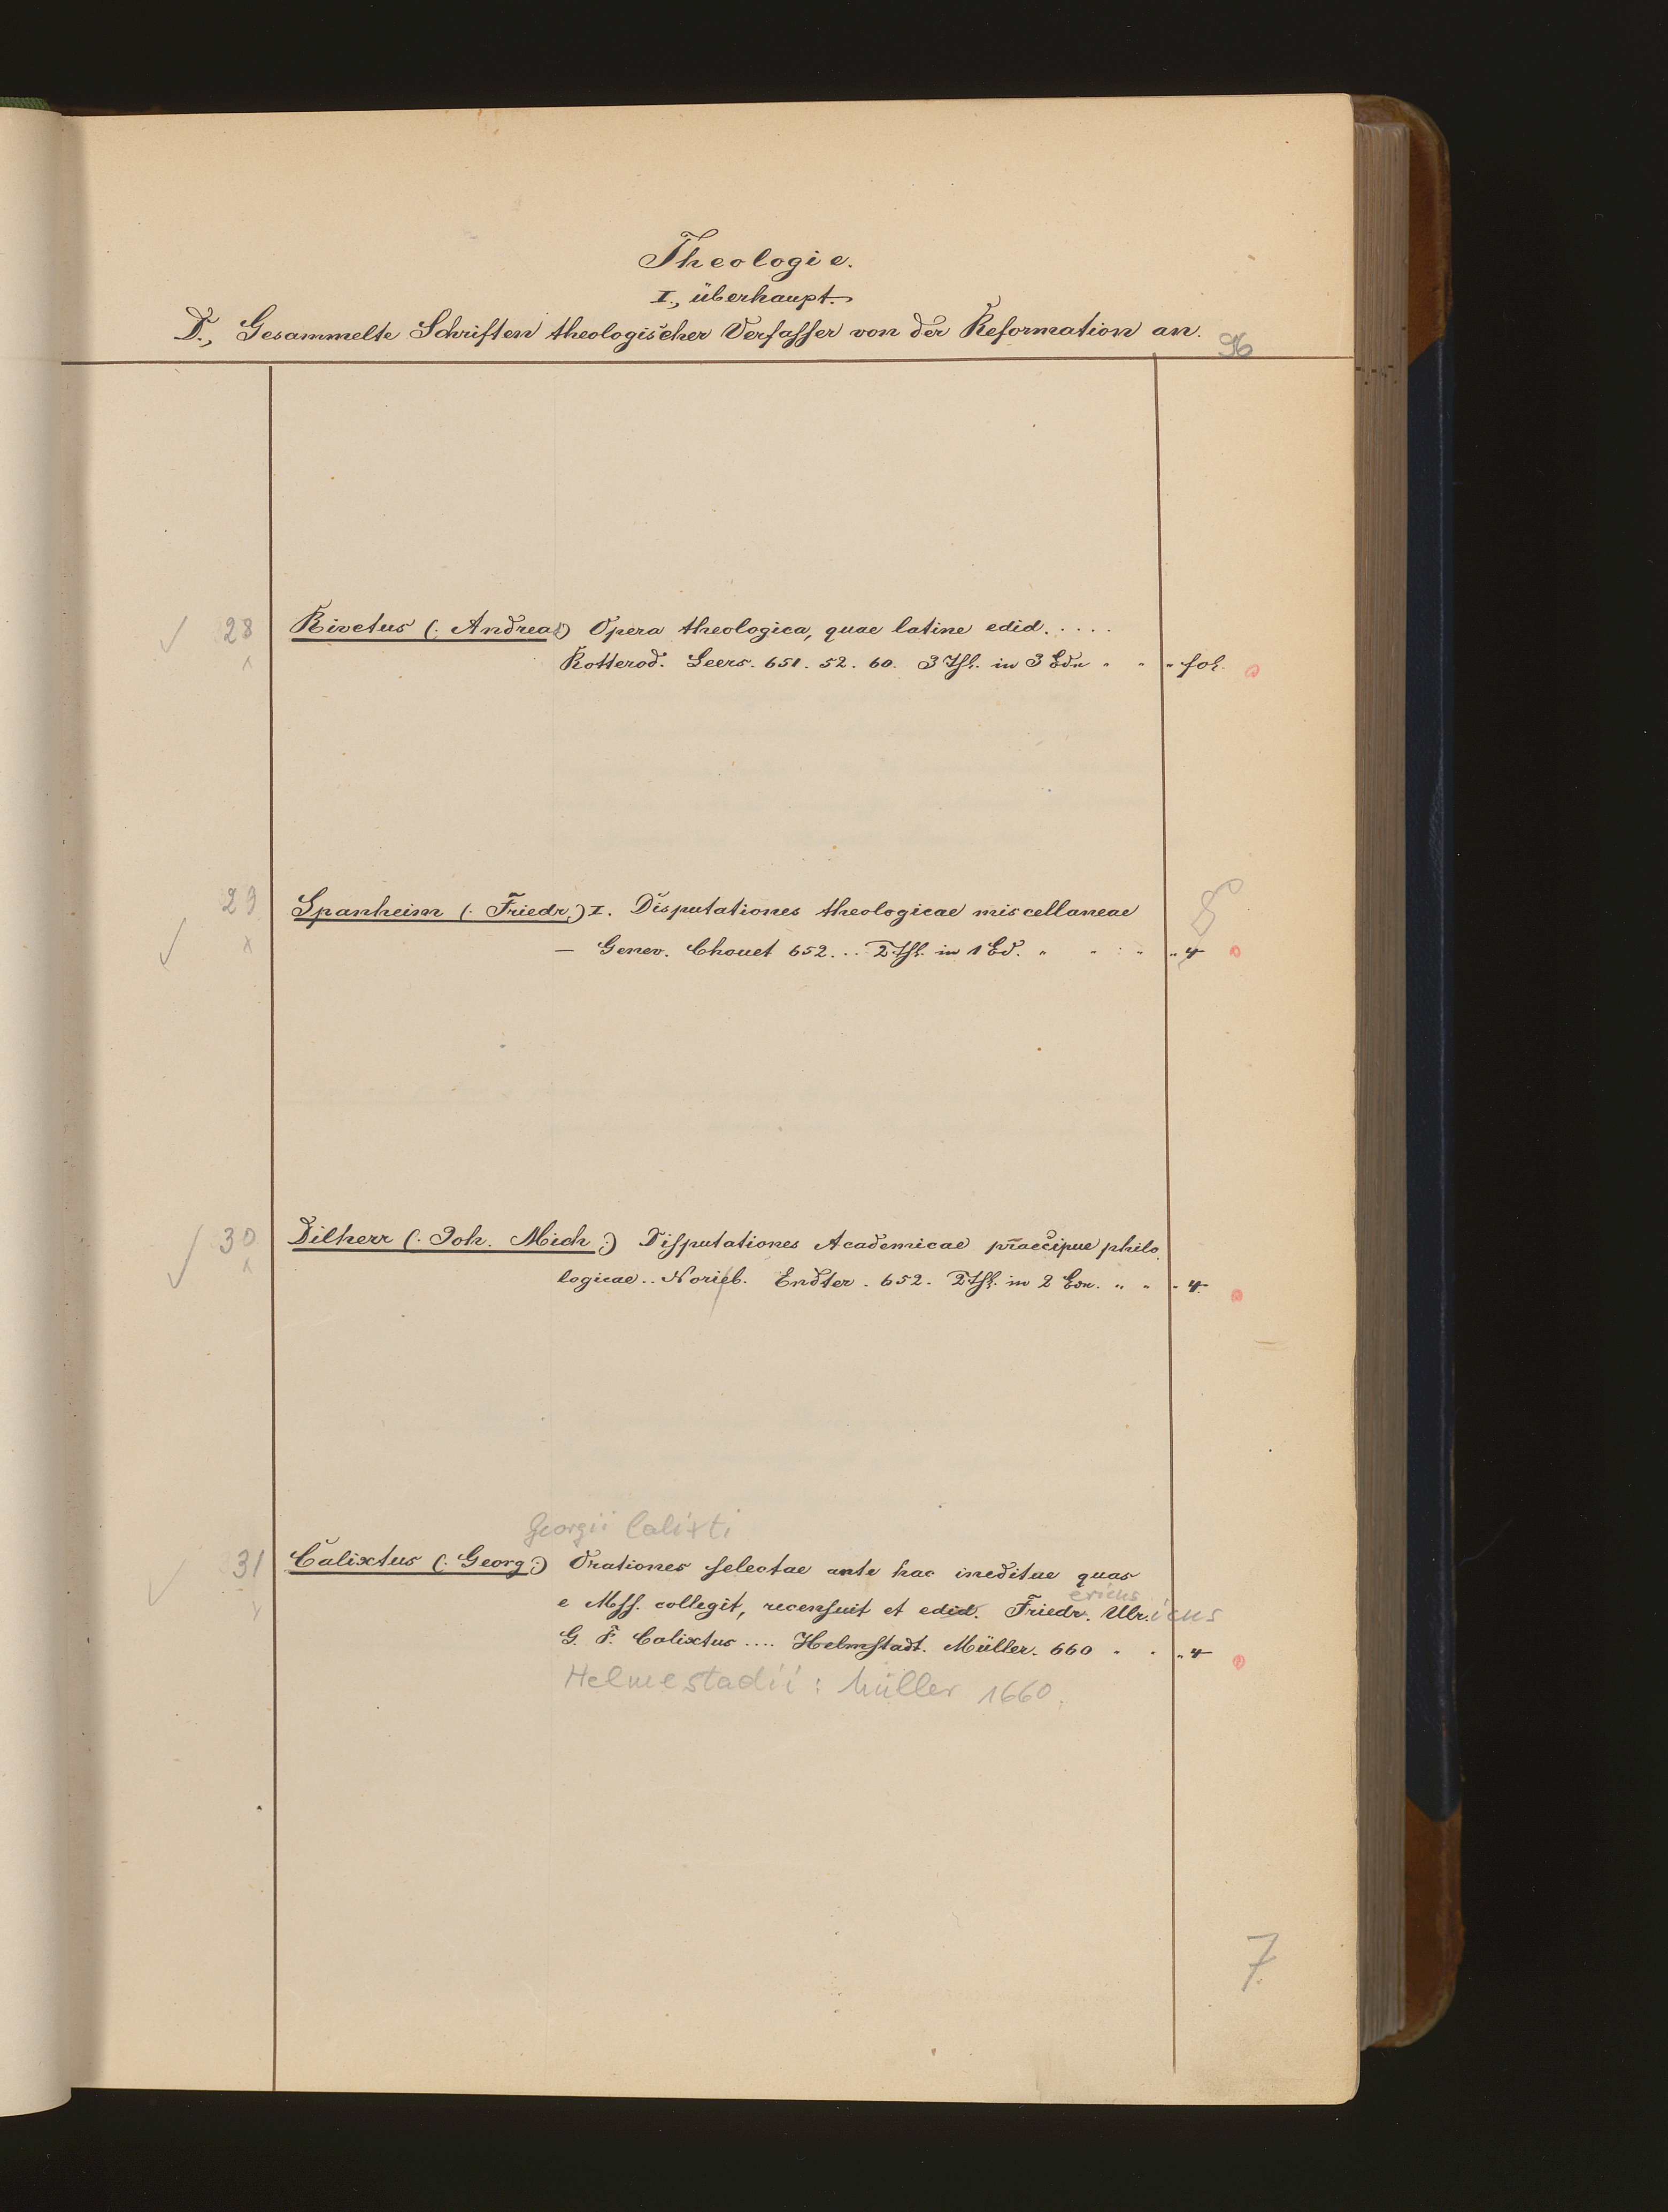 Theologie.
I., überhaupt.
D., Gesammelte Schriften theologischer Verfasser von der Reformation an.
96
28 Rivetus (: Andreas) Opera theologica, quae latine edid. . . . .
Rotterod. Leers. 651. 52. 60. 3 Thl. in 3 Bdn " " " fol.
29 Spanheim (: Friedr.) I. Disputationes theologicae miscellaneae 8
— Genev. Chouet 652... 2 Thl. in 1 Bd. " " " " 4
30 Dilherr (: Joh. Mich :) Disputationes Academicae praecipue philo
logicae .. Norib. Endter. 652. 2 Thl. in 2 Bdn. " " " 4.
Georgii Calixti
31 Calixtus (: Georg :) Orationes selectae ante hac ineditae quas
ericus
e Mss. collegit, recensuit et edid. Friedr. Ulr. icus
G. F. Calixtus .... Helmstadt. Müller. 660 " " " 4
Helmestadii : Müller 1660.
7